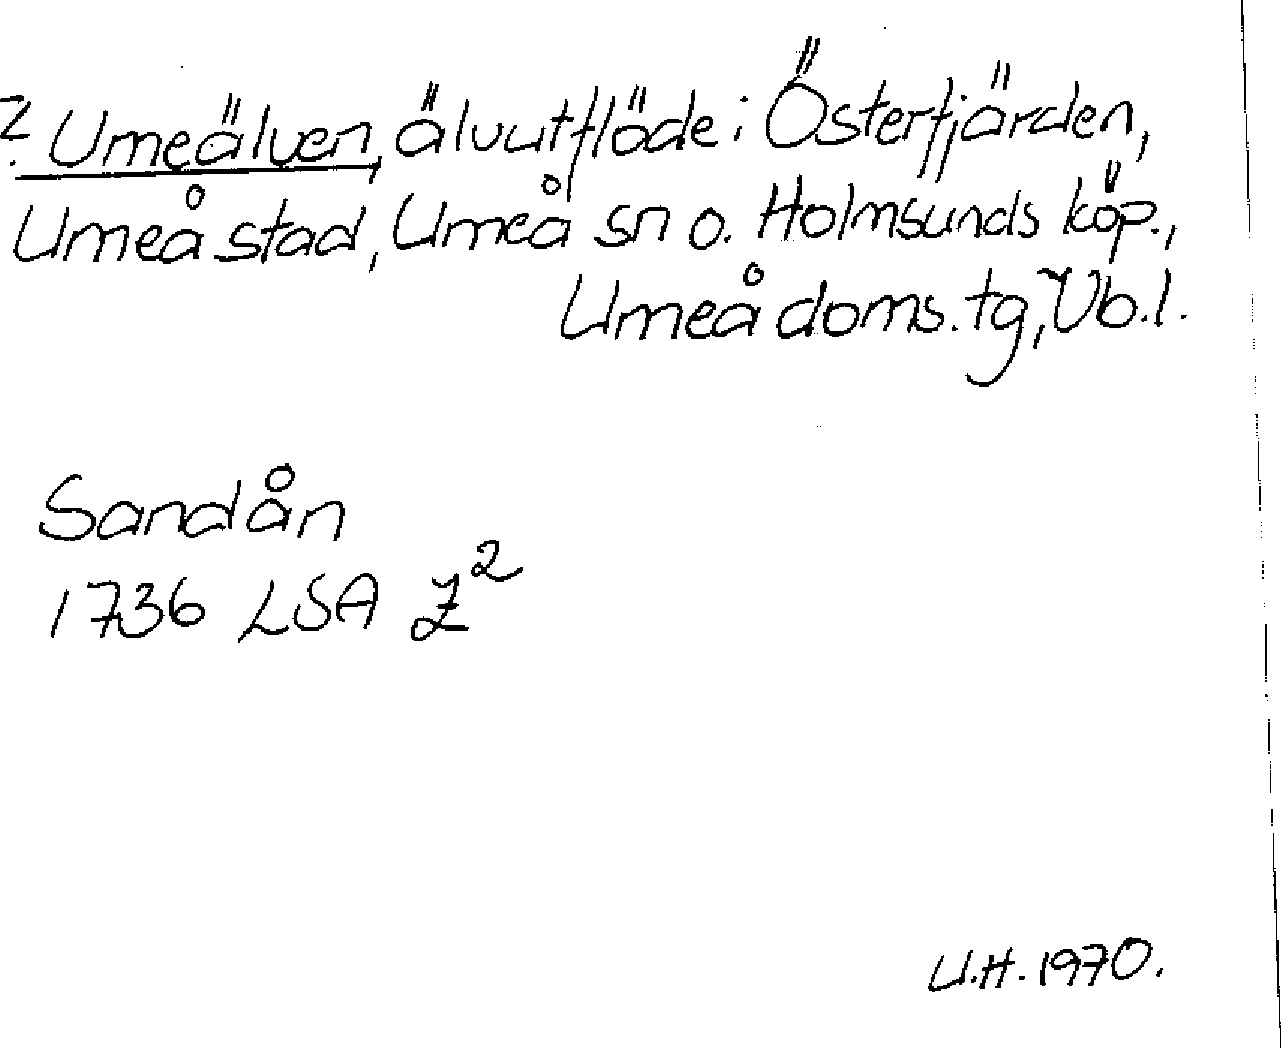 ? Umeälven, älvutflöde i Österfjärden,
Umeå stad, Umeå sn o. Holmsunds köp.,
Umeå doms. tg, Vb.l.
Sandån
1736 LSA Z²
U.H. 1970.